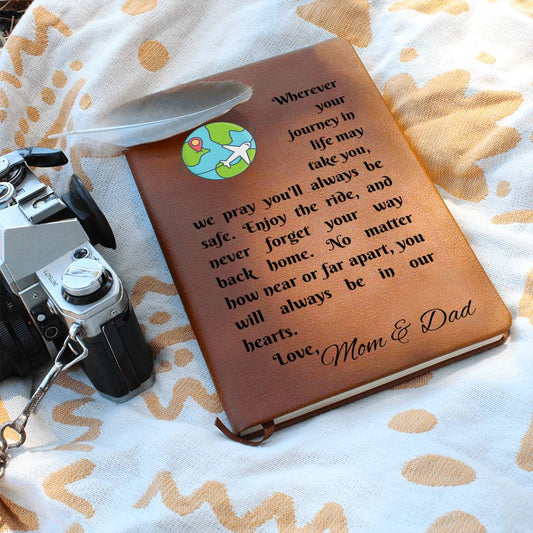 Wherever
your
journey in
life may
take you,
we pray you'll always be
safe. Enjoy the ride, and
never forget your way
back home. No matter
how near or far apart, you
will always be in our
hearts.
Love, Mom & Dad